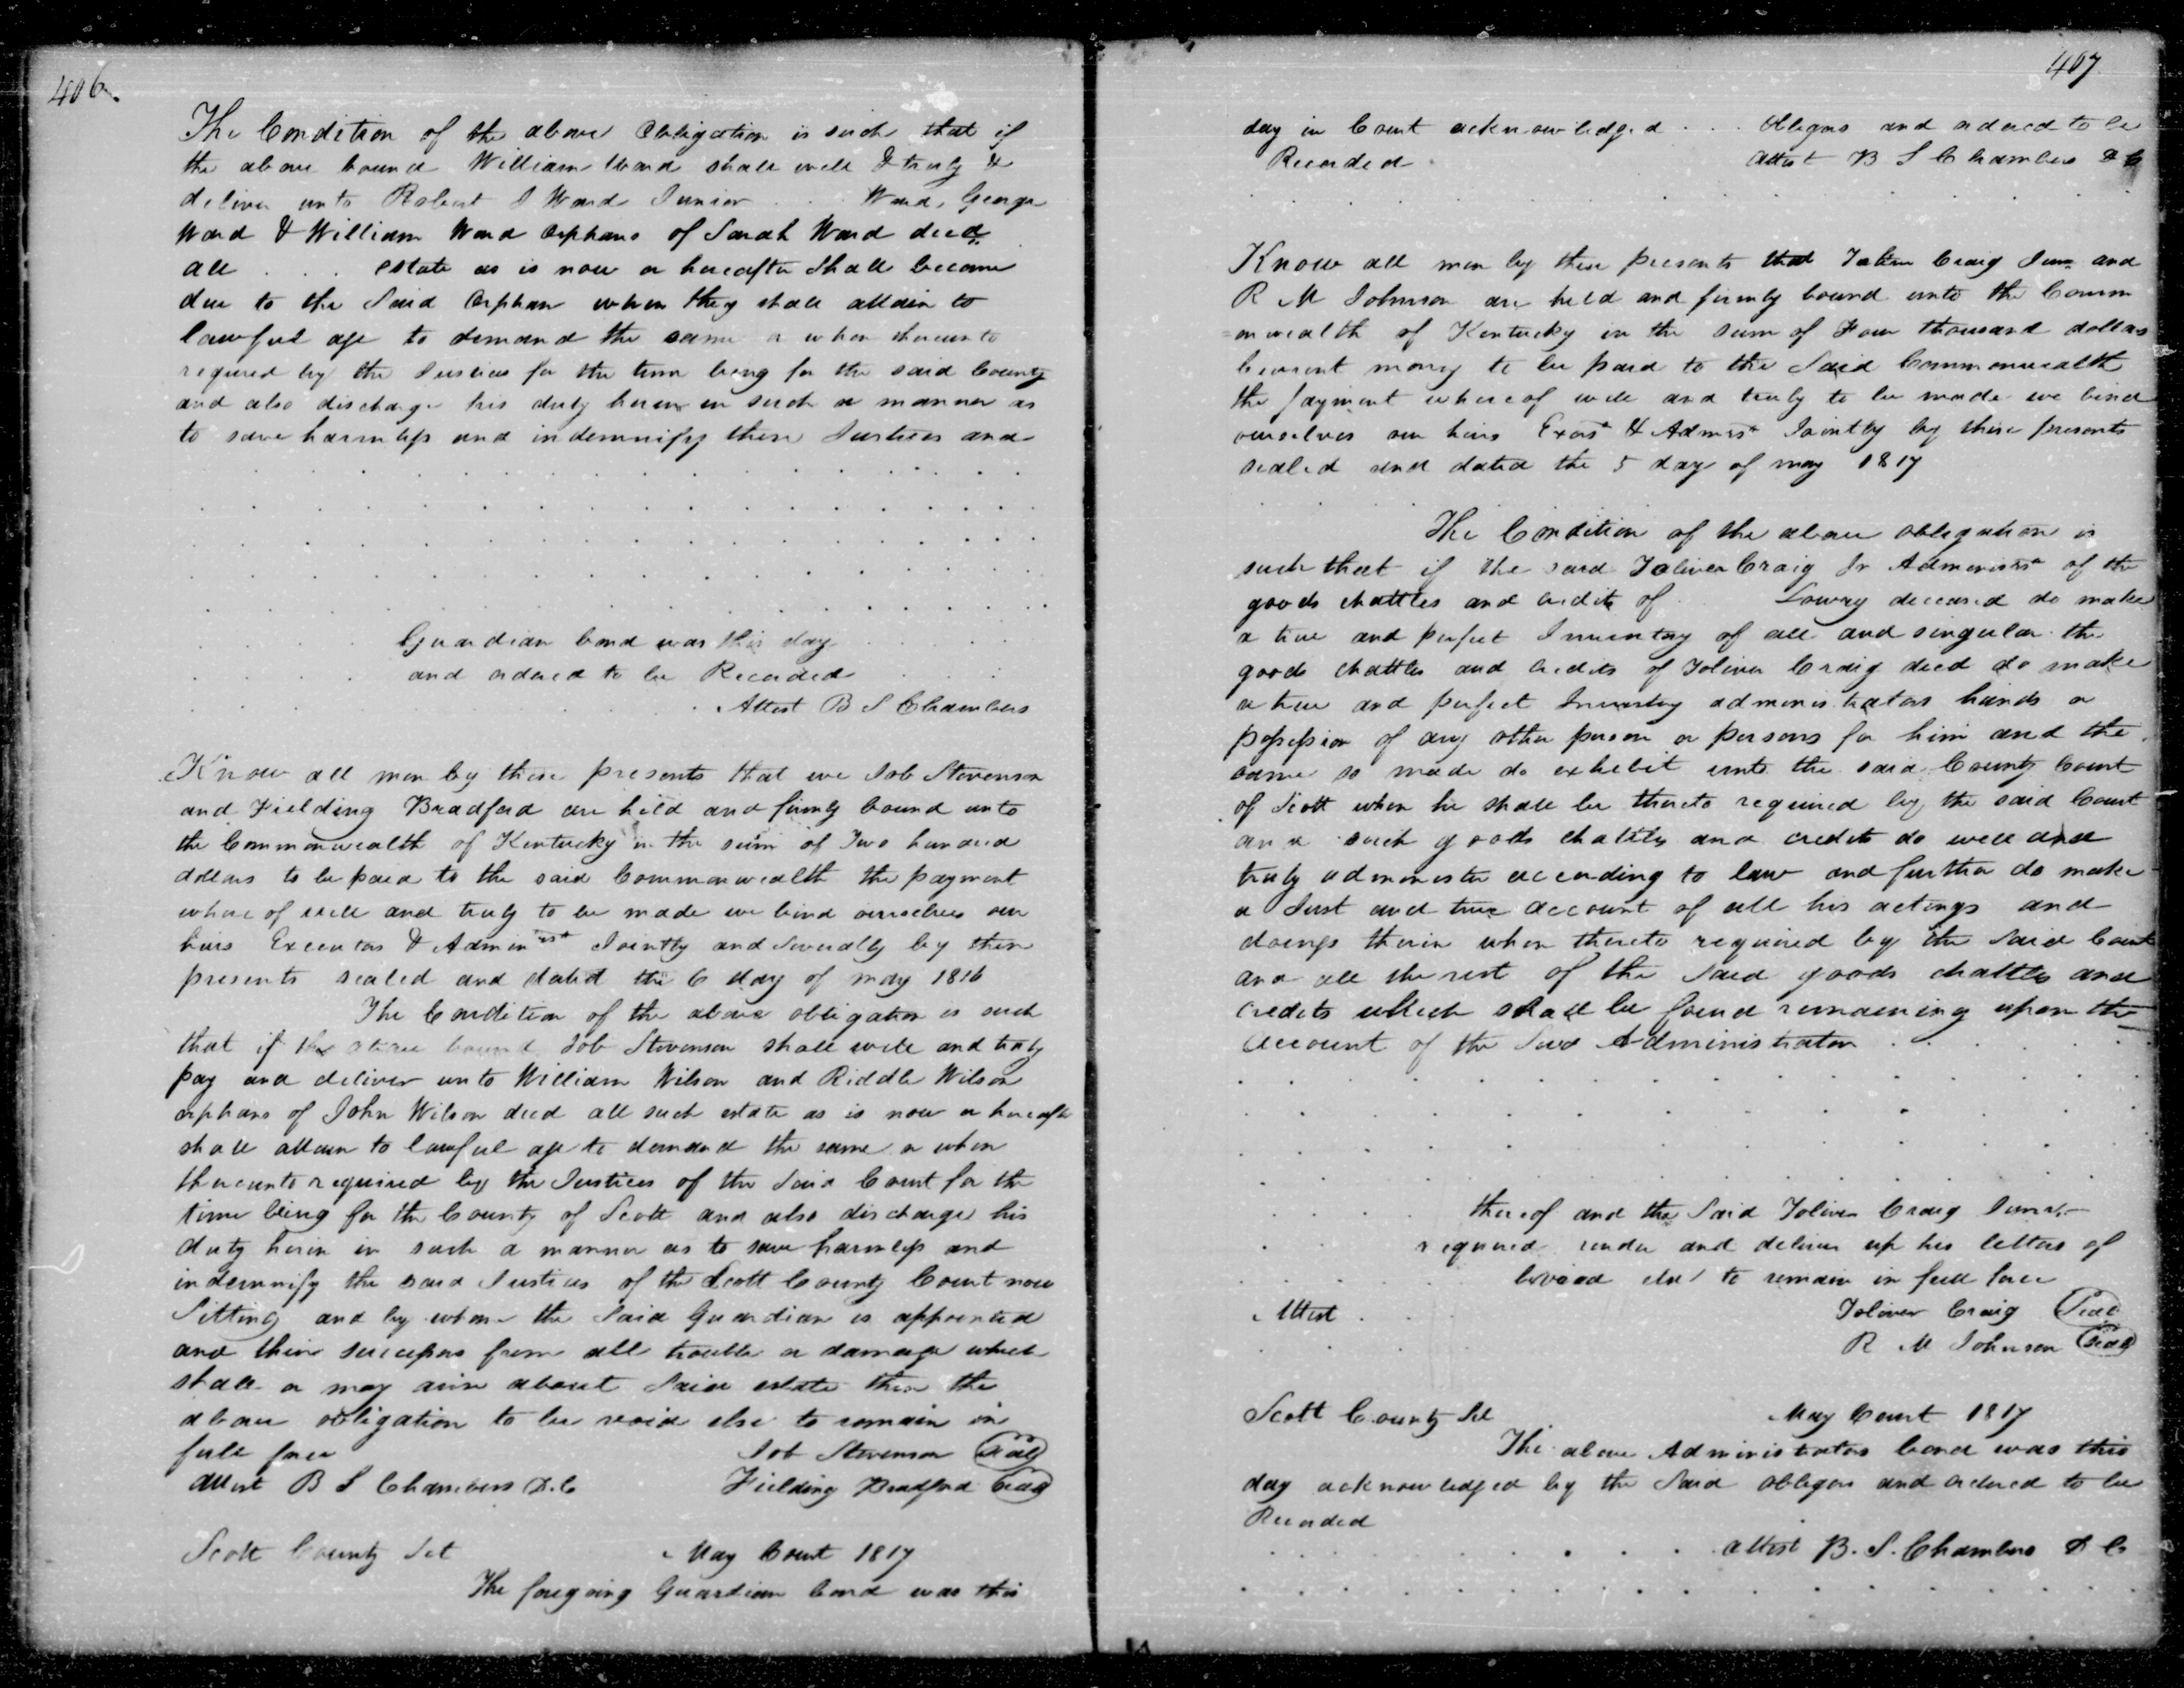 406.
The Condition of the above Obligation is such that if
the above bound William Ward shall well & truly &
deliver unto Robert J Ward Junior . . . Ward, George
Ward & William Ward Orphans of Sarah Ward decd.
all . . . estate as is now or hereafter Shall become
due to the Said Orphan when they shall attain to
lawful age to demand the same or when thereunto
required by the Justices for the time being for the said County
and also discharge his duty herein in such a manner as
to save harmless and indemnify these Justices and
Guardian bond was this day
and ordered to be Recorded
Attest B S Chambers
Know all men by these presents that we Job Stevenson
and Fielding Bradford are held and firmly bound unto
the Commonwealth of Kentucky in the sum of Two hundred
dollars to be paid to the said Commonwealth the payment
whereof well and truly to be made we bind ourselves our
heirs Executors & Administ Jointly and Severally by these
presents sealed and dated the 6 day of may 1816
The Condition of the above obligation is such
that if the above bound Job Stevenson shall well and truly
pay and deliver unto William Wilson and Riddle Wilson
orphans of John Wilson decd all such estate as is now or hereafter
shall attain to lawful age to demand the same or when
thereunto required by the Justices of the Said Court for the
time being for the County of Scott and also discharge his
duty herein in such a manner as to save harmless and
indemnify the said Justices of the Scott County Court now
Sitting and by whom the Said Guardian is appointed
and their successors from all trouble or damage which
shall or may arise about Said estate then the
above obligation to be void else to remain in
full force Job Stevenson Seal
Attest B S Chambers D.C Fielding Bradford Seal
Scott County Sct May Court 1817
The foregoing Guardian bond was this
407
day in Court acknowledged . . . Obligors and ordered to be
Recorded Attest B S Chambers D C
Know all men by these presents that Toliver Craig Junr and
R M Johnson are held and firmly bound unto the Comm
=onwealth of Kentucky in the sum of Four thousand dollars
Current money to be paid to the Said Commonwealth
the payment whereof well and truly to be made we bind
ourselves our heirs Exors & Admrs Jointly by these presents
sealed and dated the 5 day of may 1817
The Condition of the above obligation is
such that if the said Toliver Craig Jr Administr of the
goods chattles and credits of Lowry deceased do make
a true and perfect Inventory of all and singular the
goods chattles and credits of Toliver Craig decd do make
a true and perfect Inventory administrators hands or
possession of any other person or persons for him and the
same so made do exhibit unto the said County Court
of Scott when he shall be thereto required by the said Court
and such goods chattles and credits do well and
truly administer according to law and further do make
a Just and true account of all his actings and
doings therein when thereto required by the Said Court
and all the rest of the Said goods chattles and
Credits which shall be found remaining upon the
Account of the Said Administrator
thereof and the Said Toliver Craig Junr
required render and deliver up his letters of
be void else to remain in full force
Attest . . Toliver Craig Seal
R M Johnson Seal
Scott County Sct May Court 1817
The above Administrators bond was this
day acknowledged by the Said obligors and ordered to be
Recorded
Attest B. S. Chambers D C